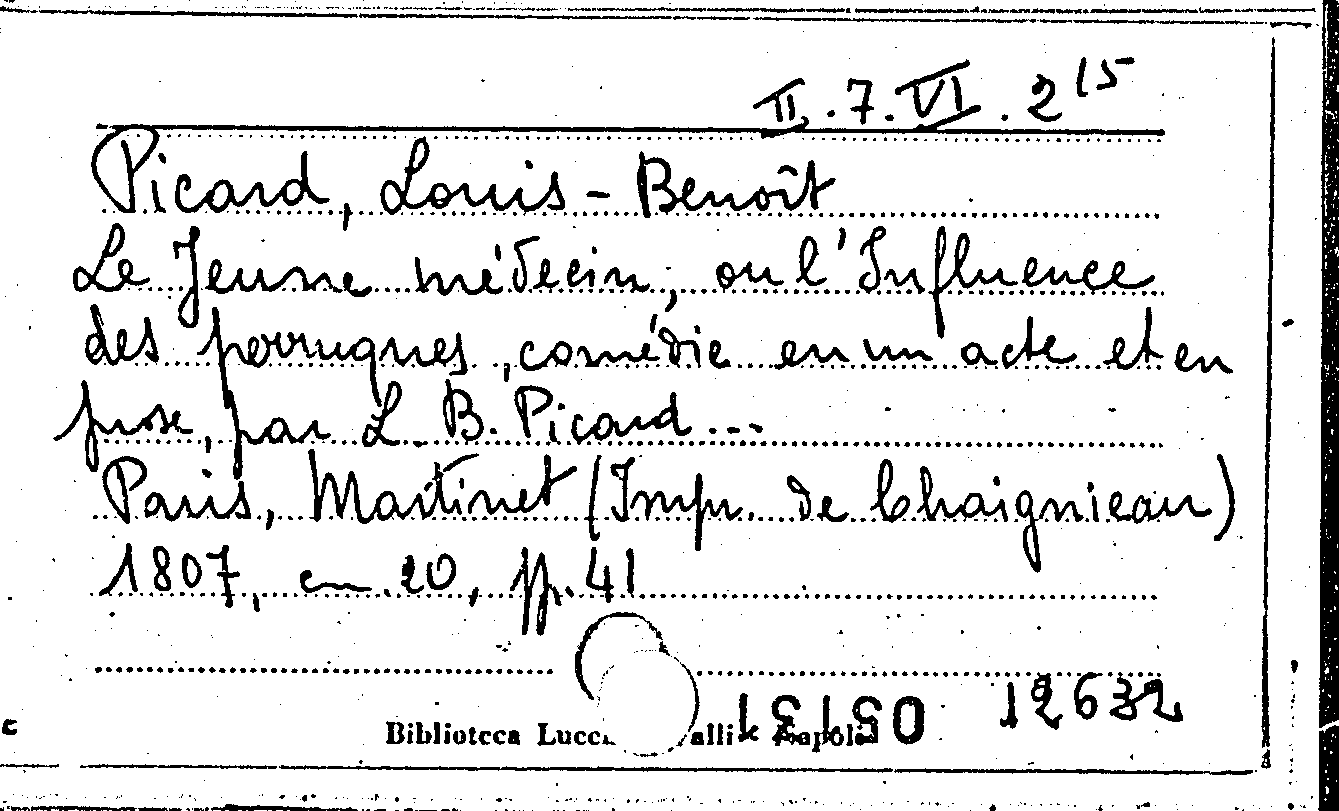 II.7.VI.2 15
Picard, Louis-Benoît
Le Jeune médecin, ou l'Influence
des perruques, comédie en un acte et en
prose, par L. B. Picard...
Paris, Martinet (Impr. de Chaignieau)
1807, cm. 20, pp. 41
12632
Biblioteca